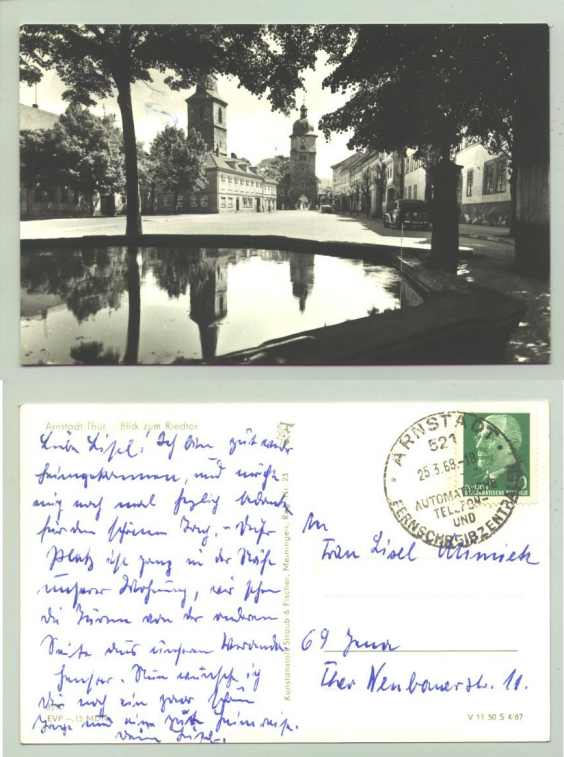 Arnstadt/Thür. Blick zum Riedtor
Liebe Lisel! Ich bin gut wieder
heimgekommen, und möchte
mich noch mal herzlich bedanken
für den schönen Tag. - Dieser
Platz ist ganz in der Nähe
unserer Wohnung, wir sehen
die Türme von der anderen
Seite aus unserem Veranda-
fenster. Nun wünsche ich
Dir noch ein paar schöne
Tage und eine gute Heimreise.
Deine
EVP
Kunstanstalt Straub & Fischer, Meiningen
ARNSTADT
521
25.3.68-18
AUTOMATISCHE
TELEFON-
UND
FERNSCHREIBZENTRALE
An
Frau Lisel
69 Jena
Otto-Neubauerstr. 11.
V 11 50 S 4/67